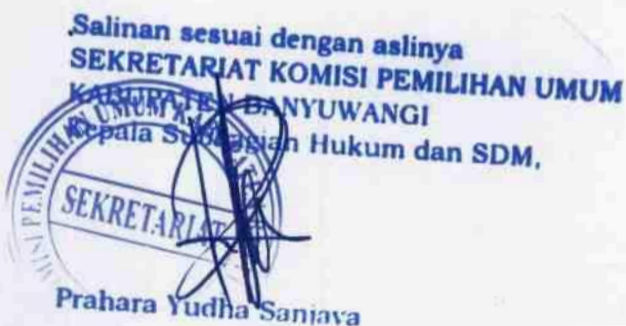 Salinan sesuai dengan aslinya
SEKRETARIAT KOMISI PEMILIHAN UMUM
KABUPATEN BANYUWANGI
Kepala Subbagian Hukum dan SDM,
MISI PEMILIHAN UMUM KABUPATEN
SEKRETARIAT
Prahara Yudha Sanjaya